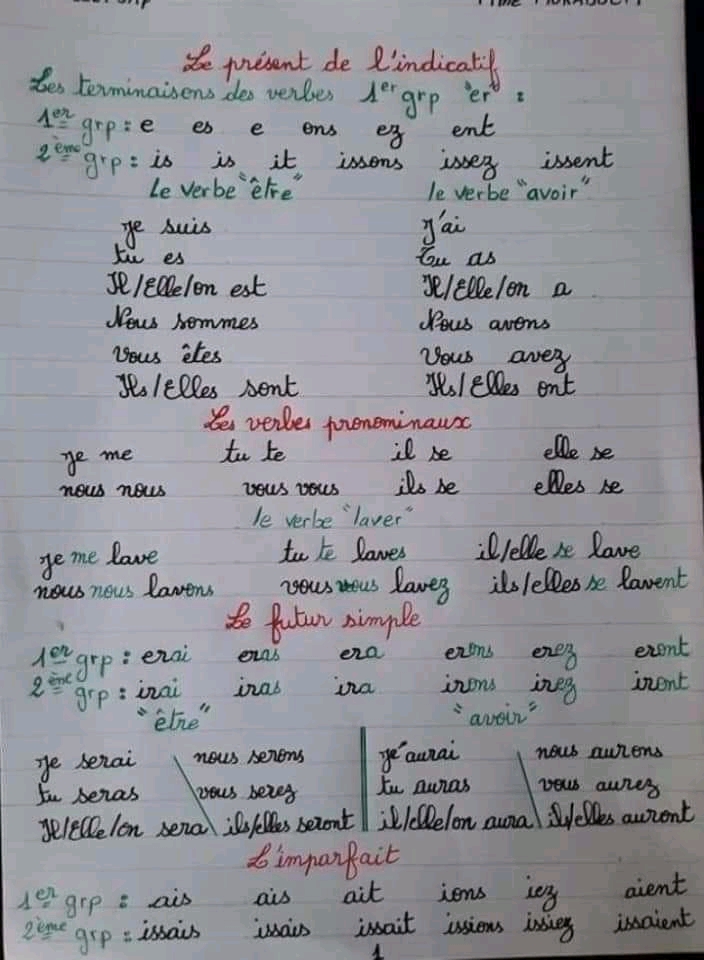 Le présent de l'indicatif
Les terminaisons des verbes 1er grp "er" :
1er grp : e es e ons ez ent
2ème grp : is is it issons issez issent
Le verbe "être" le verbe "avoir"
je suis J'ai
tu es Tu as
Il/Elle/on est Il/Elle/on a
Nous sommes Nous avons
Vous êtes Vous avez
Ils/Elles sont Ils/Elles ont
Les verbes pronominaux
je me tu te il se elle se
nous nous vous vous ils se elles se
le verbe "laver"
je me lave tu te laves il/elle se lave
nous nous lavons vous vous lavez ils/elles se lavent
Le futur simple
1er grp : erai eras era erons erez eront
2ème grp : irai iras ira irons irez iront
"être" "avoir"
je serai nous serons je'aurai nous aurons
tu seras vous serez tu auras vous aurez
Il/Elle/on sera ils/elles seront il/elle/on aura ils/elles auront
L'imparfait
1er grp : ais ais ait ions iez aient
2ème grp : issais issais issait issions issiez issaient
1